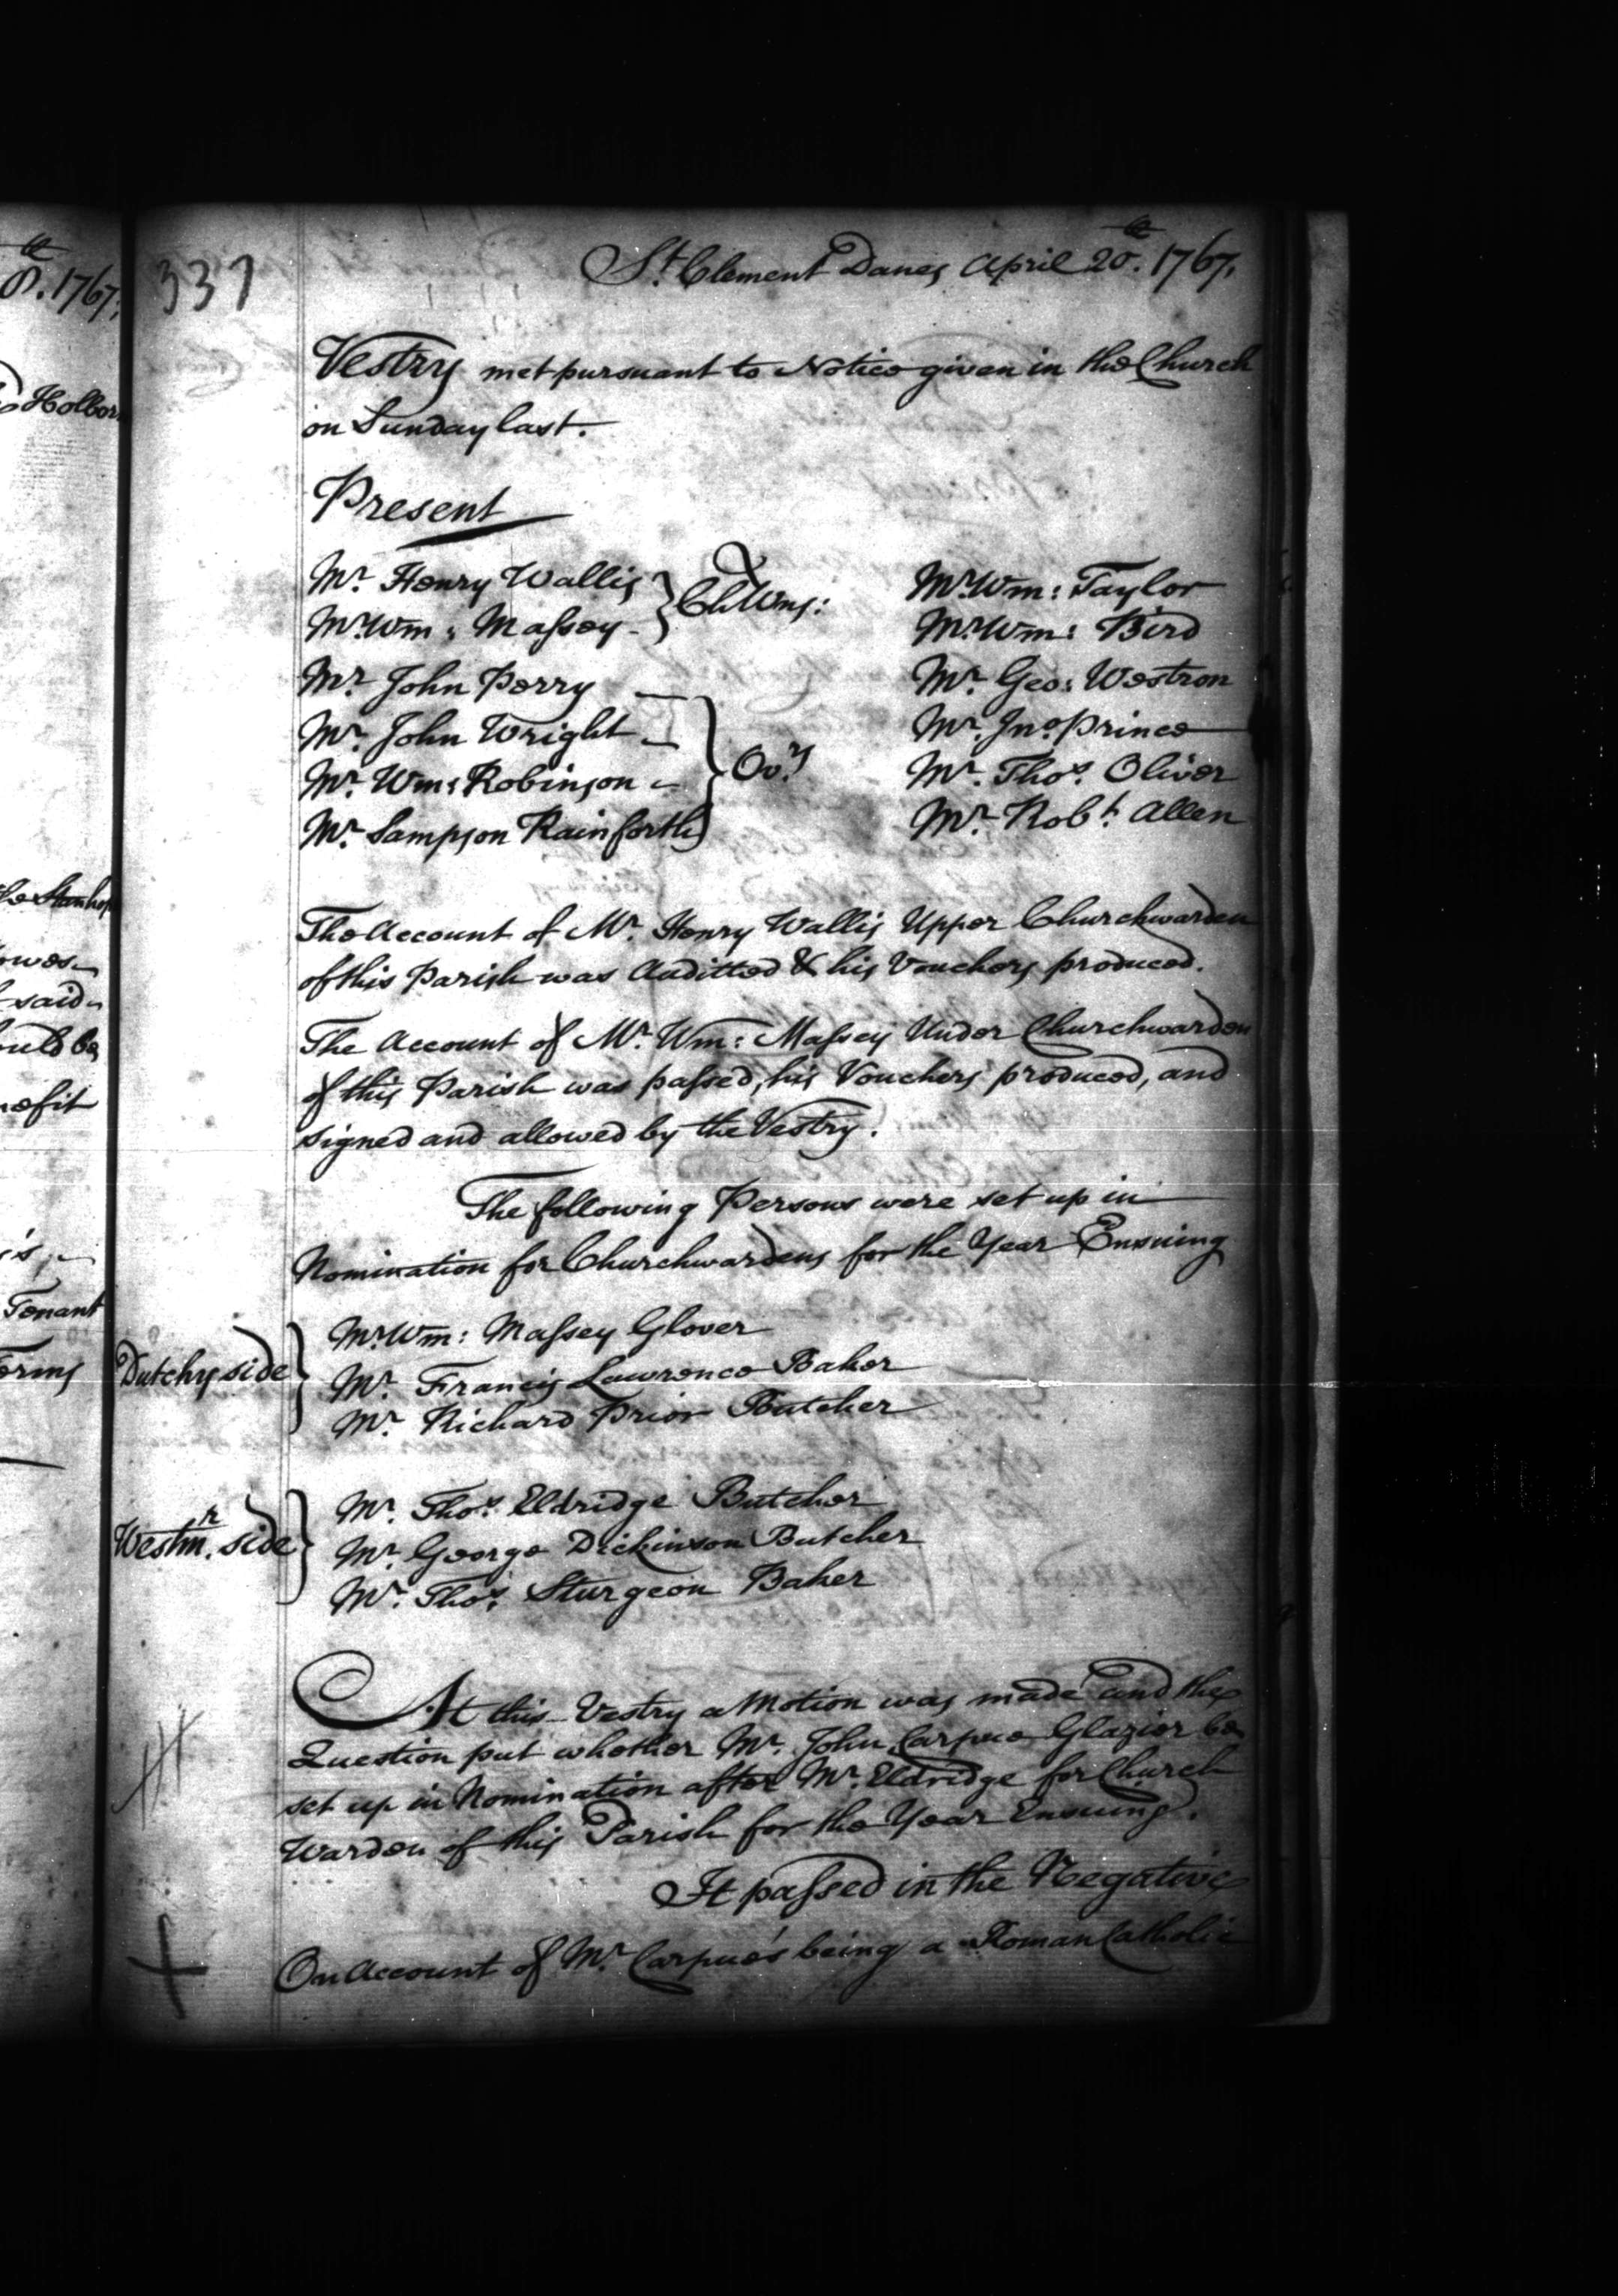 337
St. Clement Danes April 20th. 1767.
Vestry met pursuant to Notice given in the Church
on Sunday last.
Present
Mr. Henry Wallis
Mr. Wm: Massey
} Ch:Wns:
Mr. John Perry
Mr. John Wright
Mr. Wm: Robinson
Mr. Sampson Rainforth
} Ovrs
Mr. Wm: Taylor
Mr. Wm: Bird
Mr. Geo: Westron
Mr. Jno. Prince
Mr. Thos. Oliver
Mr. Robt. Allen
The Account of Mr. Henry Wallis Upper Churchwarden
of this Parish was Auditted & his Vouchers produced.
The Account of Mr. Wm: Massey Under Churchwarden
of this Parish was passed, his Vouchers produced, and
signed and allowed by the Vestry.
The following Persons were set up in
Nomination for Churchwardens for the Year Ensuing
Dutchy side }
Mr. Wm: Massey Glover
Mr. Francis Lawrence Baker
Mr. Richard Prior Butcher
Westmr. side }
Mr. Thos. Eldridge Butcher
Mr. George Dickinson Butcher
Mr. Thos. Sturgeon Baker
At this Vestry a Motion was made and the
Question put whether Mr. John Carpue Glazier be
set up in Nomination after Mr. Eldridge for Church
Warden of this Parish for the Year Ensuing.
It passed in the Negative
On Account of Mr. Carpue's being a Roman Catholic
th
1767,
Holborn
said
ould be
nefit
Tenant